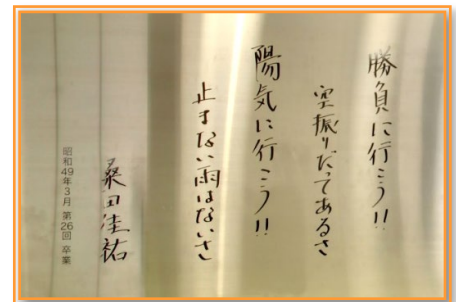 勝負に行こう!!
空振りだってあるさ
陽気に行こう!!
止まない雨はないさ
桑田佳祐
昭和49年3月 第26回 卒業